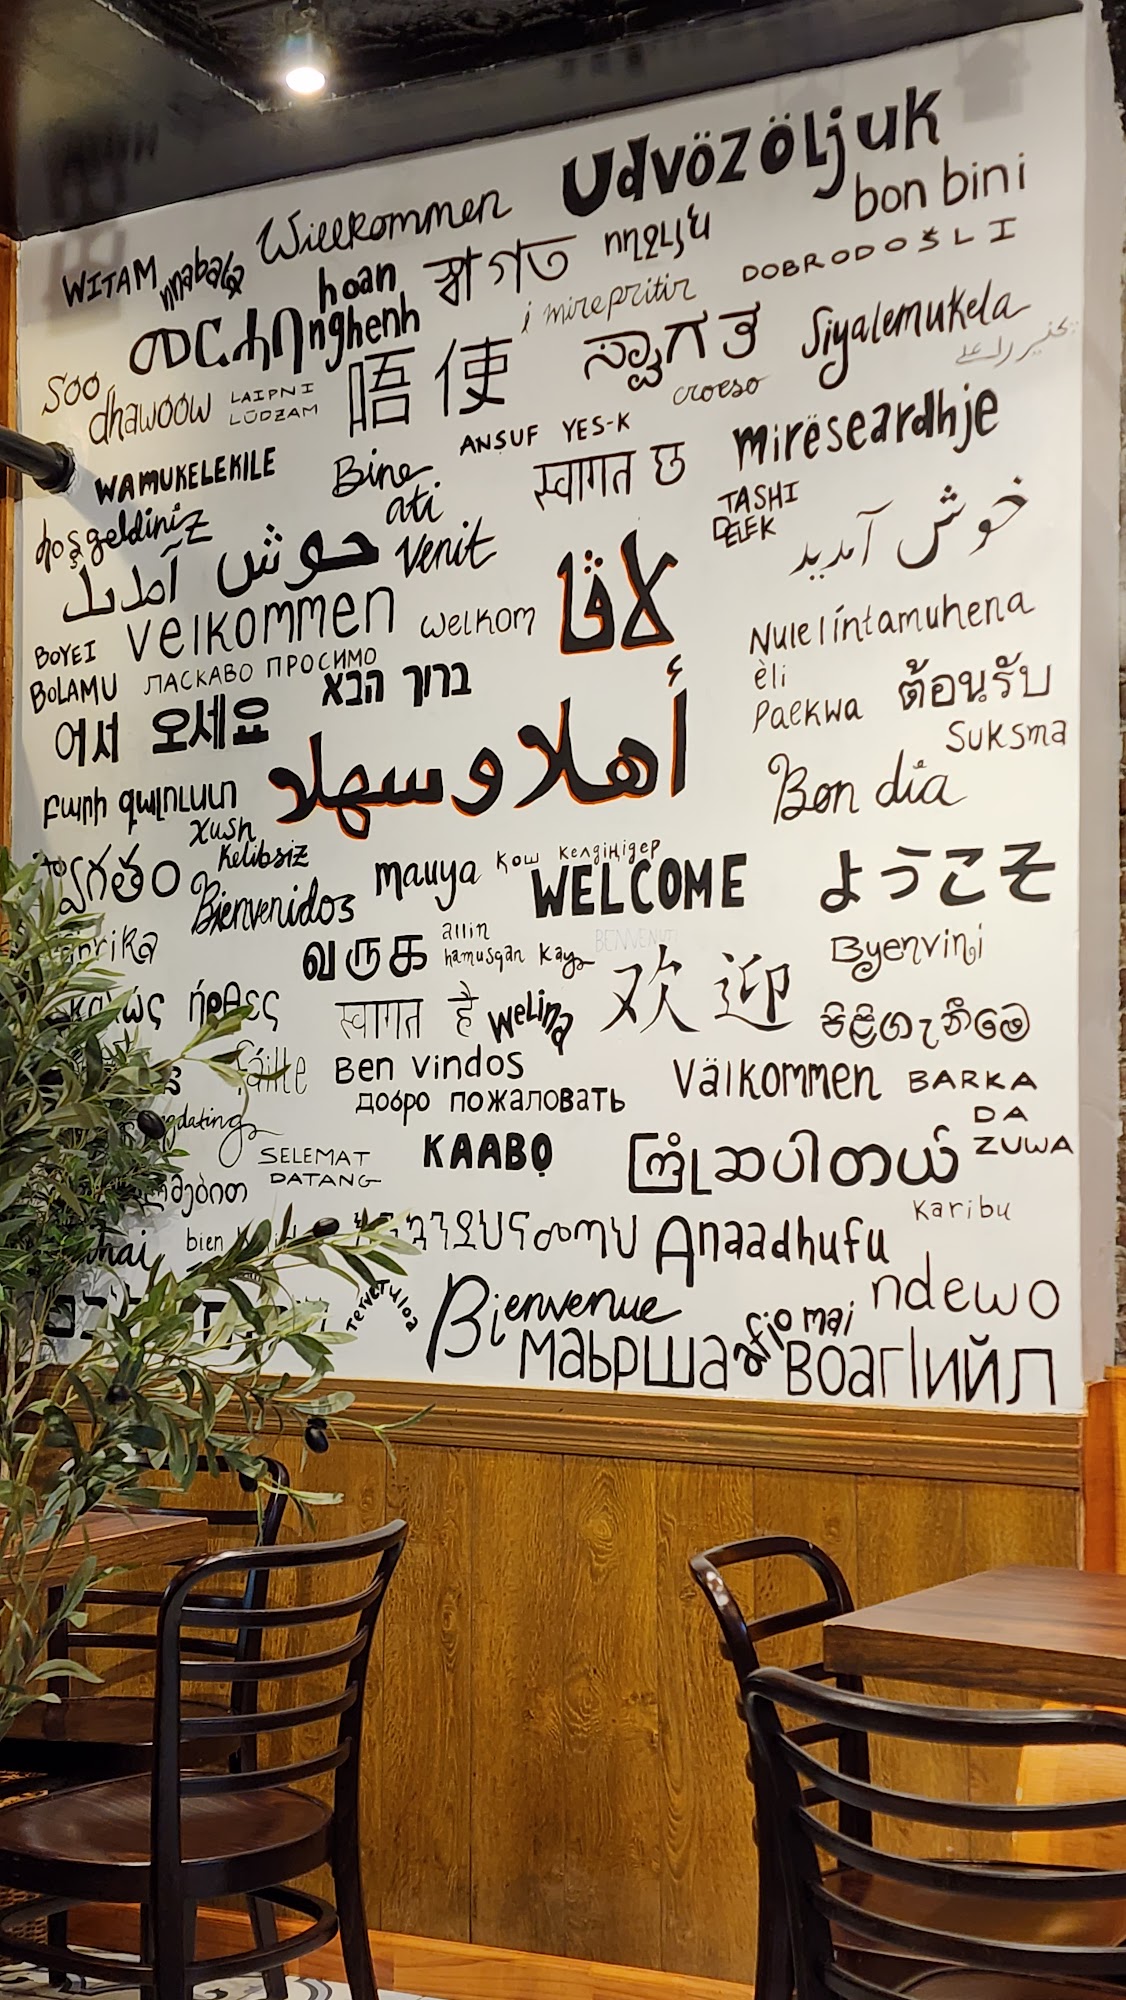 udvözöljuk
Willkommen
bon bini
WITAM
nnabata
hoan
nghenh
স্বাগত
ողջույն
DOBRODOŠLI
i mirepritir
Siyalemukela
መርሐባ
唔 使
ಸ್ವಾಗತ
croeso
Soo
dhawoow
LAIPNI
LŪDZAM
ANSUF YES-K
mirëseardhje
WAMUKELEKILE
Bine
ati
venit
स्वागत छ
TASHI
DELEK
hoşgeldiniz
خوش آمدید
خوش آمدید
لاڤا
velkommen
welkom
Nulelíntamuhena
èli
BOYEI
BOLAMU
ЛАСКАВО ПРОСИМО
ברוך הבא
paekwa
ต้อนรับ
어서 오세요
Suksma
أهلا وسهلا
Bon dia
Բարի գալուստ
xush
kelibsiz
mauya
қош келдіңідер
WELCOME
ようこそ
Bienvenidos
வருக
allin
hamusqan kay
BENVENUTI
Byenvini
καλώς ήρθες
स्वागत है
Welina
欢迎
පිළිගැනීමේ
fáilte
Ben vindos
добро пожаловать
Välkommen
BARKA
DA
ZUWA
SELEMAT
DATANG
KAABỌ
ကြိုဆိုပါတယ်
Karibu
bien
Anaadhufu
ndewo
Tervetuloa
Bienvenue
afio mai
марша вогІийл